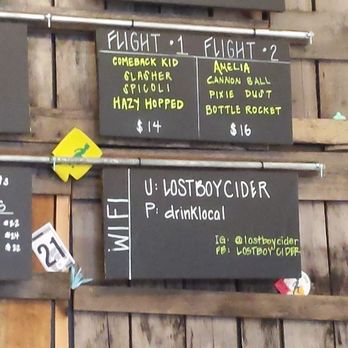 FLIGHT #1
COMEBACK KID
SLASHER
SPICOLI
HAZY HOPPED
$14
FLIGHT #2
AMELIA
CANNON BALL
PIXIE DUST
BOTTLE ROCKET
$16
WIFI
U: LOSTBOYCIDER
P: drinklocal
IG: @lostboycider
FB: LOSTBOYCIDER
21